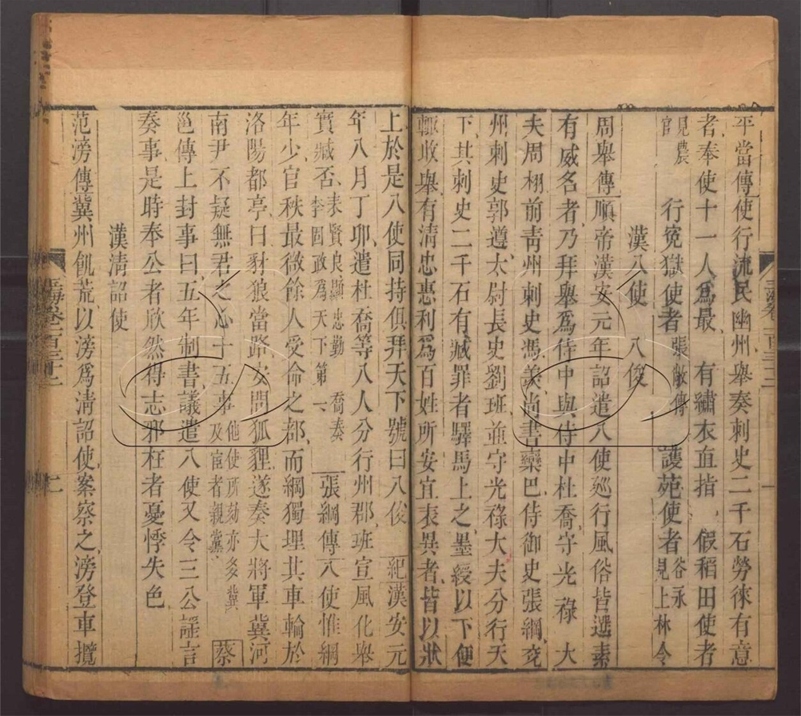 平當傳使行流民幽州舉奏刺史二千石勞徠有意
者奉使十一人爲最　有繡衣直指　假稻田使者
見農官　行冤獄使者張敞傳　護苑使者谷永見上林令
漢八使　八俊
周舉傳順帝漢安元年詔遣八使廵行風俗皆選素
有威名者乃拜舉爲侍中與侍中杜喬守光祿大
夫周栩前靑州刺史馮羨尚書欒巴侍御史張綱兖
州刺史郭遵太尉長史劉班並守光祿大夫分行天
下其刺史二千石有臧罪者驛馬上之墨綬以下便
輒收舉有清忠惠利爲百姓所安宜表異者皆以狀
上於是八使同持俱拜天下號曰八俊　紀漢安元
年八月丁夘遣杜喬等八人分行州郡班宣風化舉
實臧否表賢良顯忠勤喬奏李固政爲天下第一　張綱傳八使惟綱
年少官秩最微餘人受命之郡而綱獨埋其車輪於
洛陽都亭曰豺狼當路安問狐貍遂奏大將軍冀河
南尹不疑無君之心十五事他使所劾亦多冀及宦者親黨　蔡
邕傳上封事曰五年制書議遣八使又令三公謡言
奏事是時奉公者欣然得志邪枉者憂悸失色
漢清詔使
范滂傳冀州飢荒以滂爲清詔使案察之滂登車攬
玉海卷一百三十二
一
玉海卷一百三十二
二